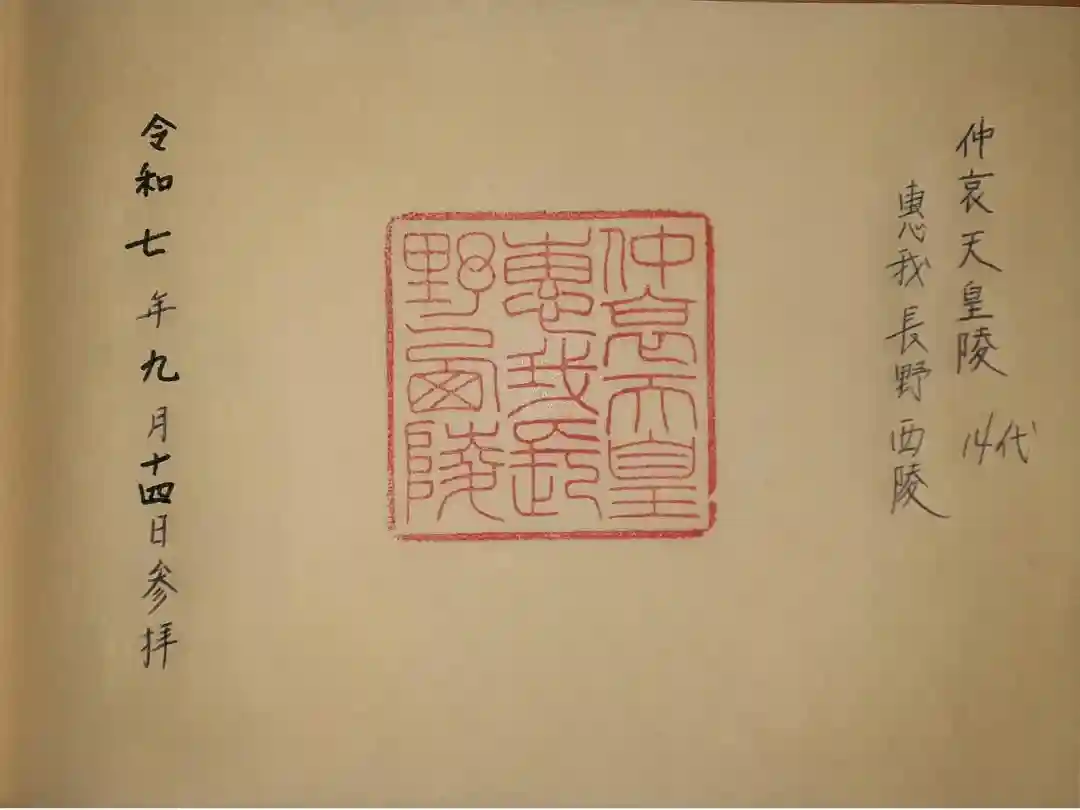 仲哀天皇陵 14代
恵我長野西陵
仲哀天皇
恵我長
野西陵
令和七年九月十四日参拝